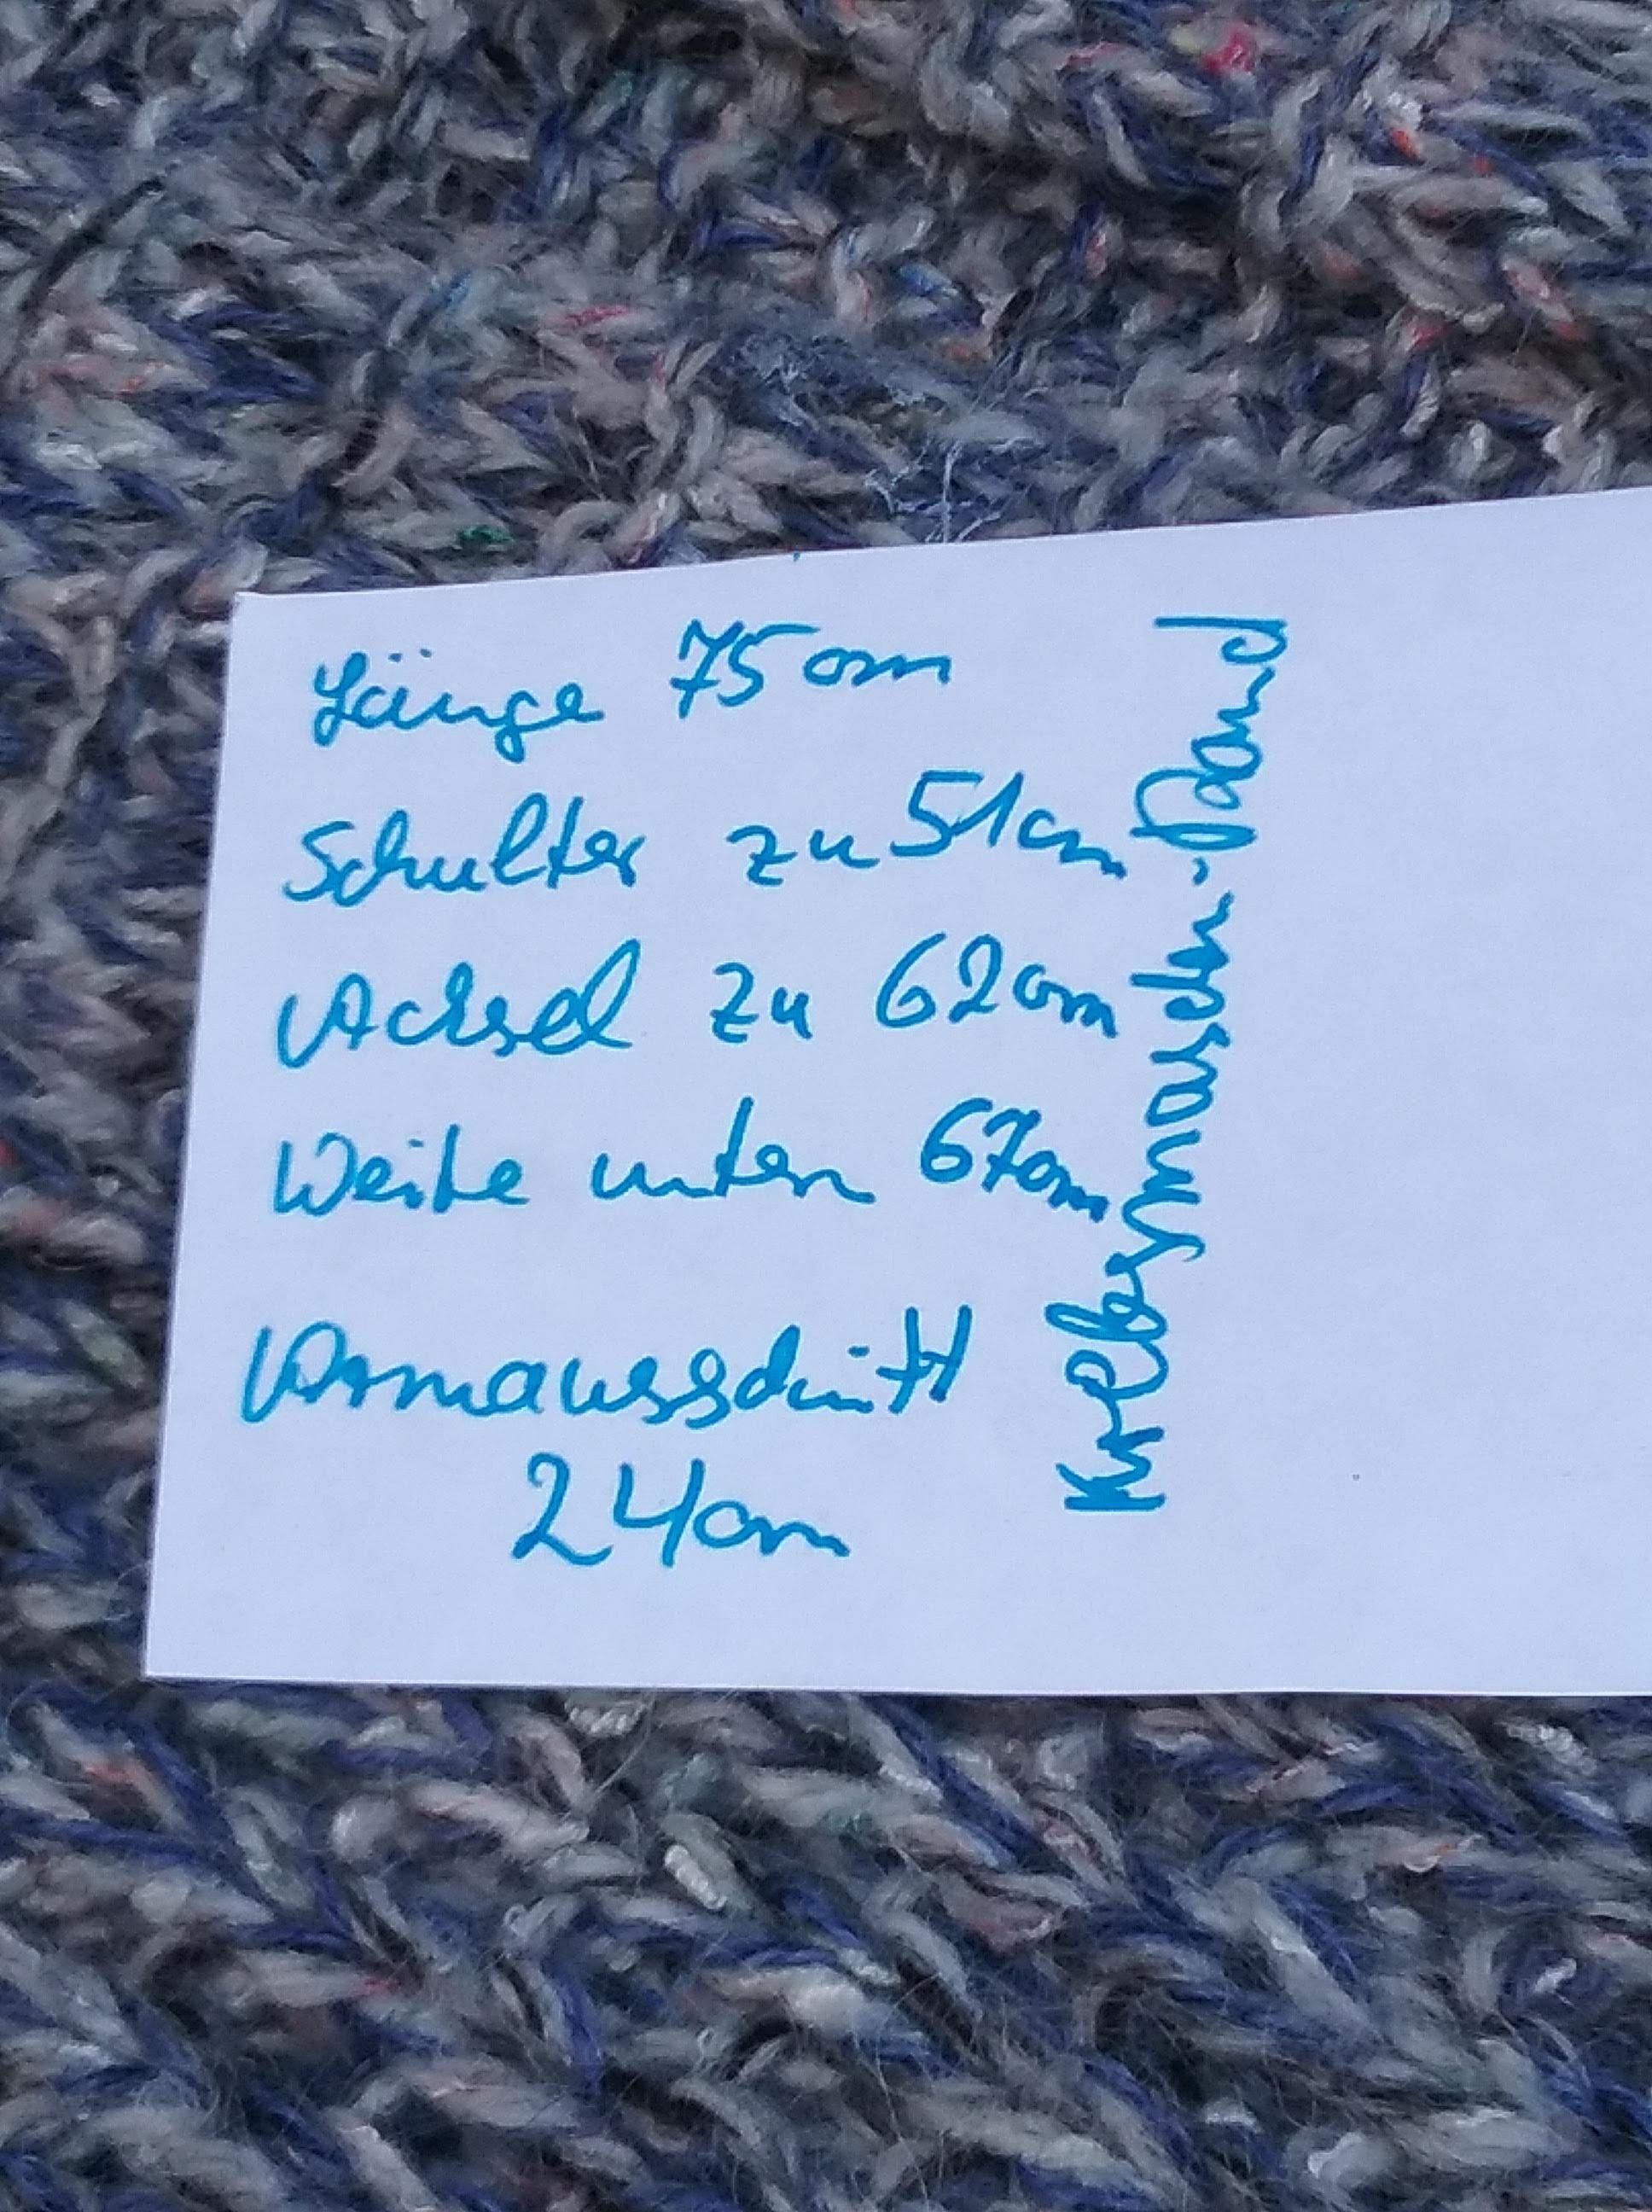 Länge 75 cm
Schulter zu 51 cm
Achsel zu 62 cm
Weite unten 67 cm
Armausschnitt
24 cm
Krebsmaschen-Rand